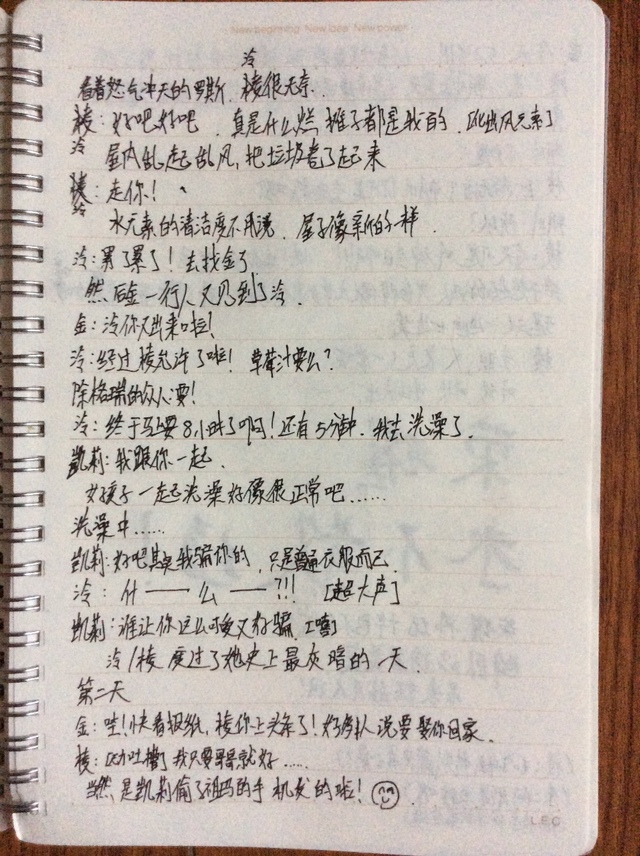 New beginning New idea New power
冷
看着怒气冲天的罗斯,棱很无奈..
棱:好吧好吧 真是什么烂摊子都是我的 风元素了
冷
屋内乱起乱风,把垃圾卷了起来
棱:走你!
冷
水元素的清洁度不用说、屋子像新的一样.
冷:累了累了!去找金了
然后金一行人又见到了冷.
金:冷你又出来啦!
冷:经过棱允许了啦!草莓汁要么?
除格瑞的众人:要!
冷:终于马上要8小时了啊!还有5分钟.我去洗澡了.
凯莉:我跟你一起.
女孩子一起洗澡好像很正常吧……
洗澡中……
凯莉:好吧其实是我骗你的,只是普通衣服而已.
冷:什——么——?!![超大声]
凯莉:谁让你这么可爱又好骗[嘻]
冷/棱度过了她史上最灰暗的一天.
第二天
金:哇!快看报纸,棱你上头条了!好多人说要娶你回家.
棱:吐槽 我只要哥哥就好……
当然是凯莉偷了祖玛的手机发的啦!
LEO